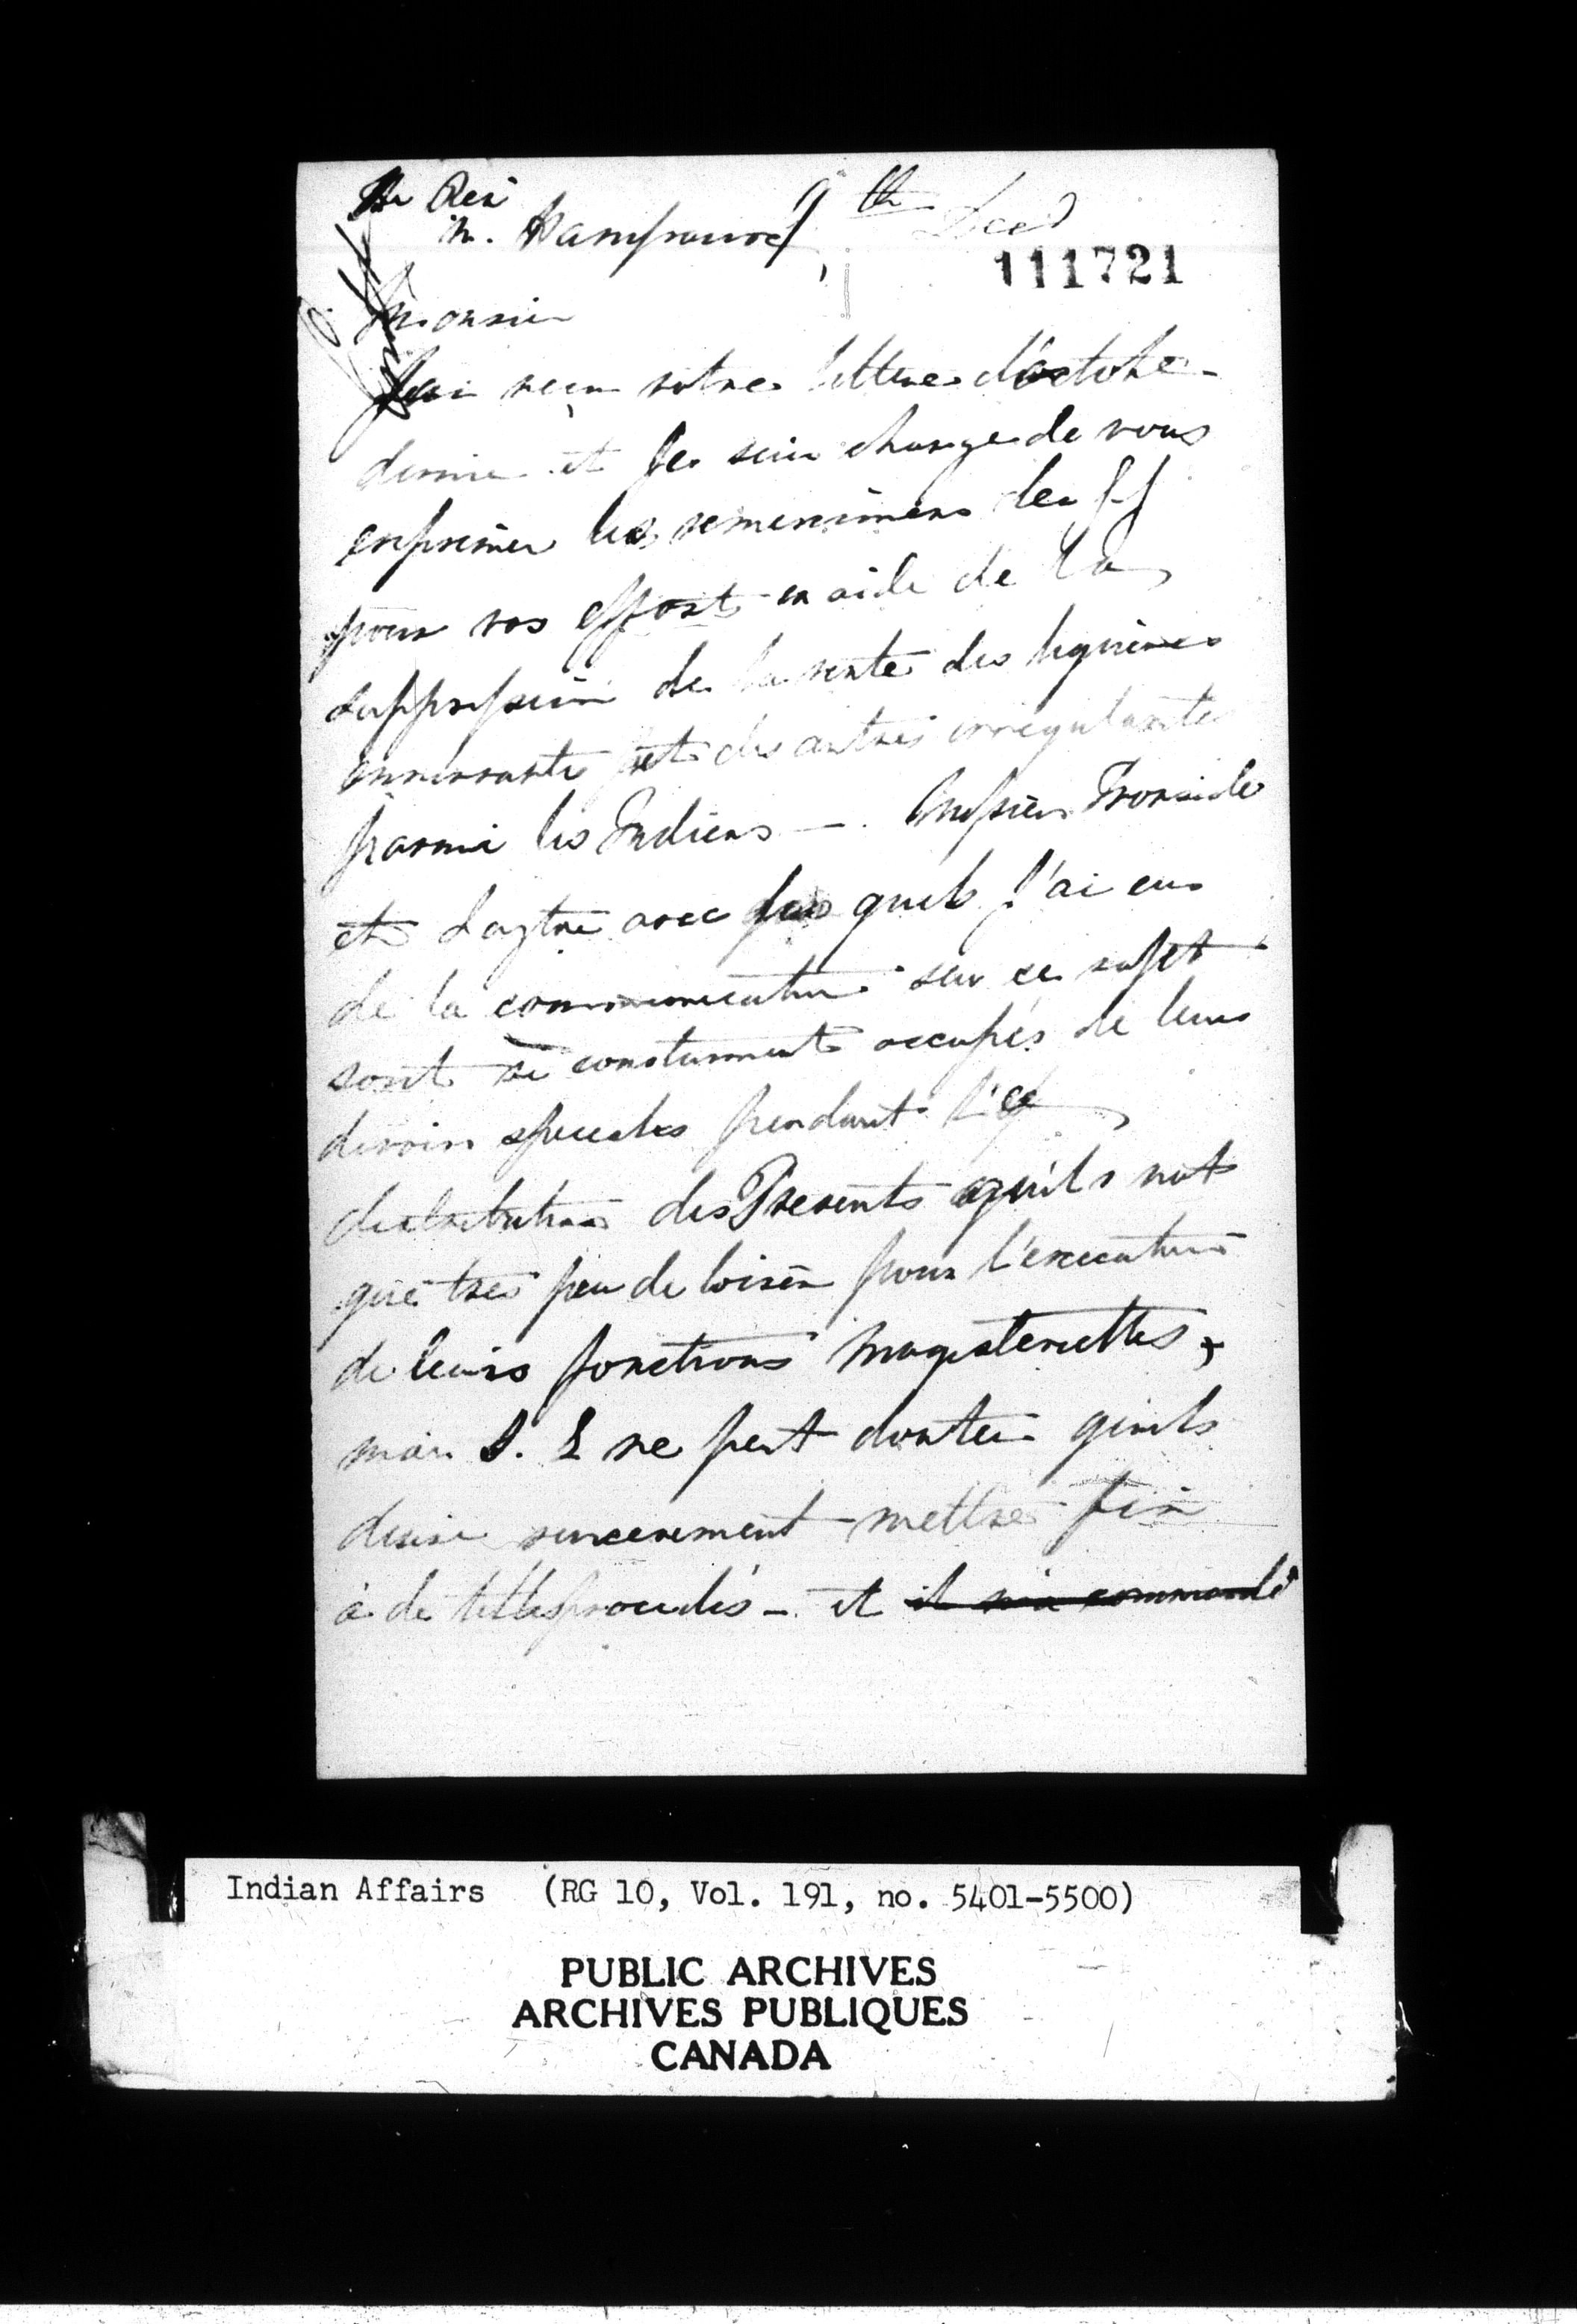 The Rev
N. Hanipaux
9th Decr
111721
Monsieur
J'ai reçu votre lettre d'octobre
dernier et je suis charge de vous
exprimer les remercimens de
pour vos effort en aide de la
suppression de la vente des liqueures
ennivrante et des autres irregularites
parmi les Indiens —. Messieurs Ironside
et Laytre avec les quels j'ai eu
de la communication sur ce sujet
sont si constamment occupés de leurs
devoirs speciales pendant
distribution des Presents qu'ils n'ont
que tres peu de loisir pour l'execution
de leurs fonctions magisterielles,
mais S. E ne peut douter qu'ils
desire sincerement mettre fin
à de telles procedés - et il m'a commandé
Indian Affairs (RG 10, Vol. 191, no. 5401-5500)
PUBLIC ARCHIVES
ARCHIVES PUBLIQUES
CANADA